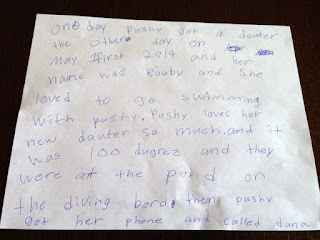 One day pushy got a dauter
the other day on
May first 2014 and her
name was Rouby and She
loved to go swimming
with pushy. Pushy loves her
new dauter so much. and it
was 100 dugrez and they
were at the pond on
the diving bord. then pushy
got her phone and called dana